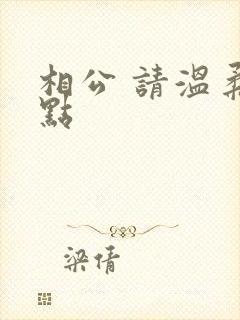 相公 請溫柔
點
梁倩